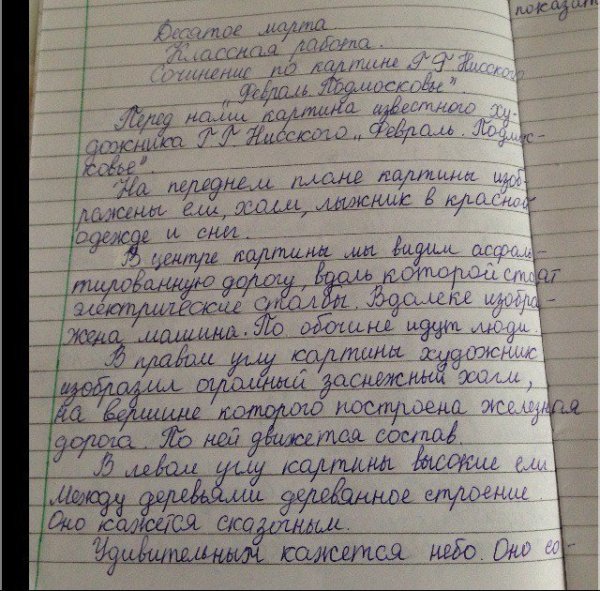 показат
Десятое марта
Классная работа.
Сочинение по картине Г Г Нисского
„Февраль. Подмосковье".
Перед нами картина известного ху-
дожника Г Г Нисского „Февраль. Подмос-
ковье".
На переднем плане картины изоб-
ражены ели, холм, лыжник в красной
одежде и снег.
В центре картины мы видим асфаль-
тированную дорогу, вдоль которой стоят
электрические столбы. Вдалеке изобра-
жена машина. По обочине идут люди.
В правом углу картины художник
изобразил огромный заснежный холм,
на вершине которого построена железная
дорога. По ней движется состав.
В левом углу картины высокие ели.
Между деревьями деревянное строение.
Оно кажется сказочным.
Удивительным кажется небо. Оно со-